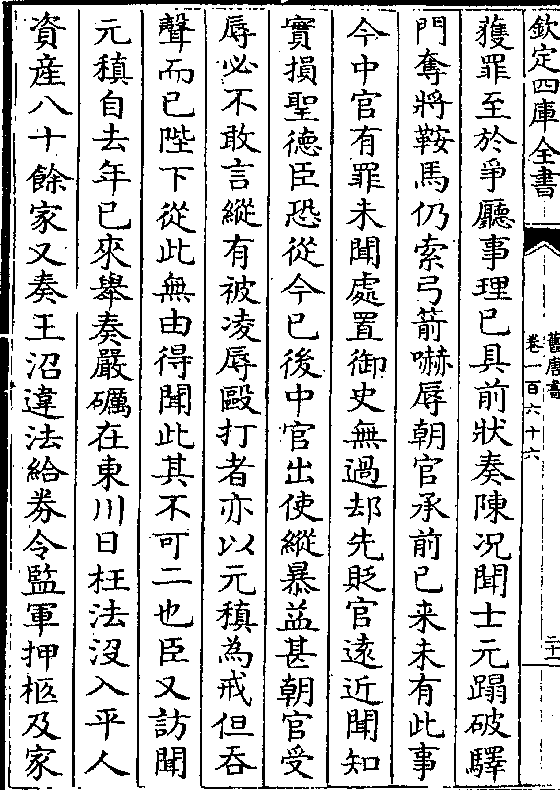 欽定四庫全書
舊唐書
卷一百六十六
二十
蒦罪至於爭廳事理已具前狀奏陳况聞士元蹋破驛
門奪將鞍馬仍索弓箭嚇辱朝官承前已来未有此事
今中官有罪未聞處置御史無過却先貶官遠近聞知
實損聖德臣恐從今已後中官出使縱暴益甚朝官受
辱必不敢言縱有被凌辱毆打者亦以元稹為戒但吞
聲而已陛下從此無由得聞此其不可二也臣又訪聞
元稹自去年已來舉奏嚴礪在東川日枉法沒入平人
資産八十餘家又奏王沼違法給劵令監軍押柩及家